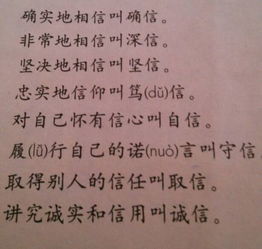 确实地相信叫确信。
非常地相信叫深信。
坚决地相信叫坚信。
忠实地信仰叫笃(dǔ)信。
对自己怀有信心叫自信。
履(lǚ)行自己的诺(nuò)言叫守信。
取得别人的信任叫取信。
讲究诚实和信用叫诚信。